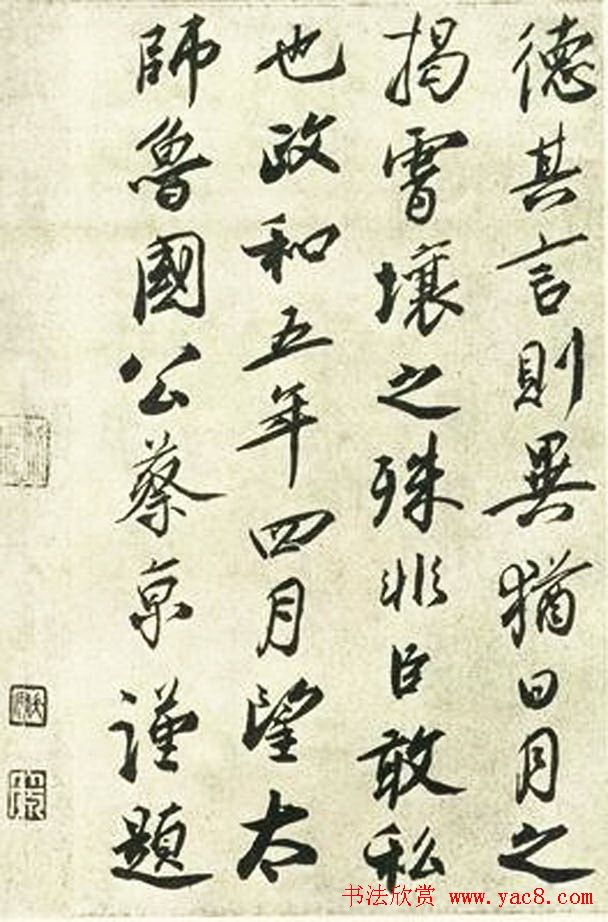 德其言則異猶日月之
揭霄壤之殊非臣敢私
也政和五年四月望太
師魯國公蔡京謹題
书法欣赏 www.yac8.com